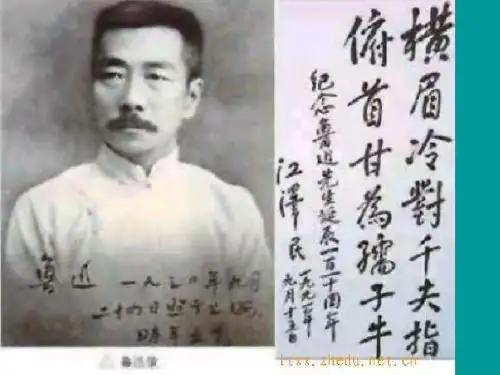 魯迅 一九三〇年九月
二十四日照于上海,
時年五十
鲁迅像
橫眉冷對千夫指
俯首甘為孺子牛
紀念魯迅先生誕辰一百一十周年
江澤民
一九九一年
九月十五日